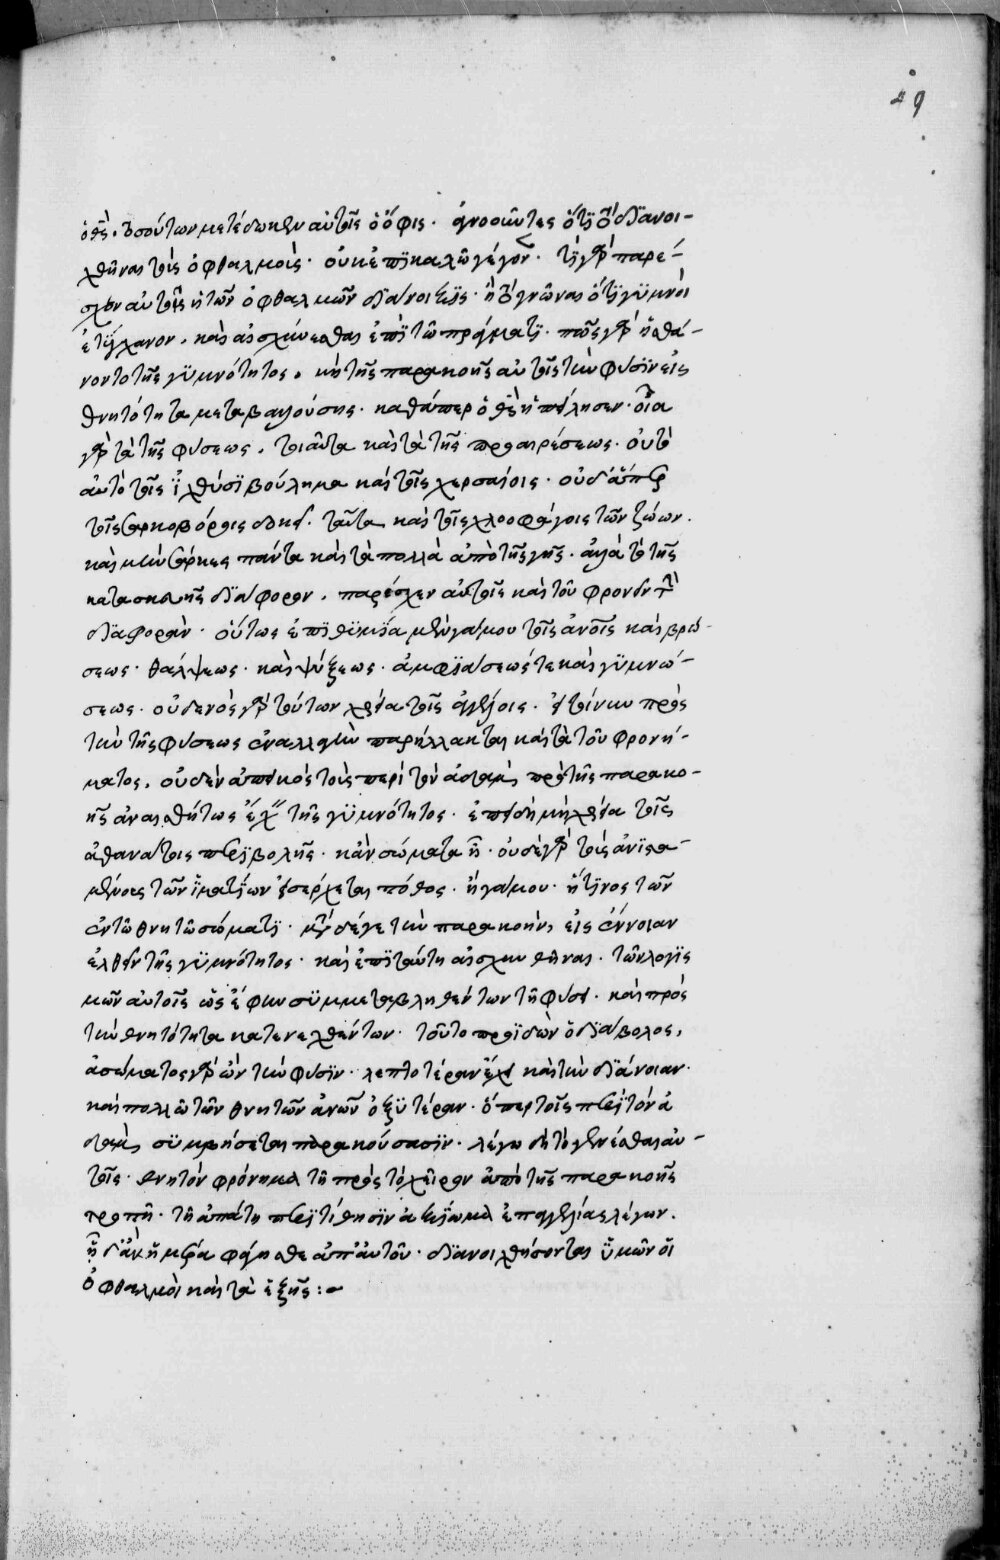 49
ὁ θεὸς. τοσούτων μετέδωκεν αὐτοῖς ὁ ὄφις. ἀγνοοῦντες ὅτι τὸ διανοι-
χθῆναι τοὺς ὀφθαλμοὺς. οὐκ ἐπὶ καλῶ γέγονε. τί γὰρ παρέ-
σχεν αὐτοῖς ἡ τῶν ὀφθαλμῶν διάνοιξις. ἢ τὸ γνῶναι ὅτι γυμνοὶ
ἐτύγχανον. καὶ αἰσχύνεσθαι ἐπὶ τῶ πράγματι. πῶς γὰρ ᾐσθά-
νοντο τῆς γυμνότητος. μὴ τῆς παρακοῆς αὐτοῖς τὴν φύσιν εἰς
θνητότητα μεταβαλούσης. καθάπερ ὁ θεὸς ἠπείλησεν. οἷα
γὰρ τὰ τῆς φύσεως. τοιαῦτα καὶ τὰ τῆς προαιρέσεως. οὐ τὸ
αὐτὸ τοῖς ἰχθύσι βούλημα καὶ τοῖς χερσαίοις. οὐδ' ἅπερ
τοῖς σαρκοβόροις δοκεῖ. ταῦτα καὶ τοῖς χλοοφάγοις τῶν ζώων.
καὶ μὴν σάρκες πάντα καὶ τὰ πολλὰ ἀπὸ τῆς γῆς. ἀλλὰ τὸ τῆς
κατασκευῆς διάφορον. παρέσχεν αὐτοῖς καὶ τοῦ φρονεῖν τὴν
διαφορὰν. οὕτως ἐπιθυμία μὲν γάμου τοῖς ἀνοις καὶ βρώ-
σεως. θάλψεως. καὶ ψύξεως. ἀμφιάσεώς τε καὶ γυμνώ-
σεως. οὐδενὸς γὰρ τούτων χρεία τοῖς ἀγγέλοις. εἰ τοίνυν πρὸς
τὴν τῆς φύσεως ἐναλλαγὴν παρήλλακται καὶ τὰ τοῦ φρονή-
ματος. οὐδὲν ἀπεικὸς τοὺς περὶ τὸν ἀδὰμ πρὸ τῆς παρακο-
ῆς ἀναισθήτως ἔχειν τῆς γυμνότητος. ἐπειδὴ μὴ χρεία τοῖς
ἀθανάτοις περιβολῆς. κἂν σώματα ἦ. οὐδὲ γὰρ τοὺς ἀνιστα-
μένους τῶν ἱματίων εἰσέρχεται πόθος. ἢ γάμου. ἤ τινος τῶν
ἐν τῶ θνητῶ σώματι. μετὰ δέ γε τὴν παρακοὴν, εἰς ἔννοιαν
ἐλθεῖν τῆς γυμνότητος. καὶ ἐπὶ ταύτη αἰσχυνθῆναι. τῶν λογισ
μῶν αὐτοῖς ὡς ἔφην συμμεταβληθέντων τῆ φύσει. καὶ πρὸς
τὴν θνητότητα κατενεχθέντων. τοῦτο προϊδὼν ὁ διάβολος,
ἀσώματος γὰρ ὢν τὴν φύσιν. λεπτοτέραν ἔχει καὶ τὴν διάνοιαν.
καὶ πολλῶ τῶν θνητῶν ἀνων ὀξυτέραν. ὅπερ τοῖς περὶ τὸν ἀ
δὰμ συμβήσεται παρακούσασιν. λέγω δὴ τὸ γενέσθαι αὐ-
τοῖς. θνητὸν φρόνημα τῆ πρὸς τὸ χεῖρον ἀπὸ τῆς παρακοῆς
τροπῆ. τῆ ἀπάτη περιτίθησιν ἀξίωμα ἐπαγγελίας λέγων.
ἧ δ' ἂν ἡμέρα φάγησθε ἀπ' αὐτοῦ. διανοιχθήσονται ὑμῶν οἱ
ὀφθαλμοὶ καὶ τὰ ἑξῆς :~